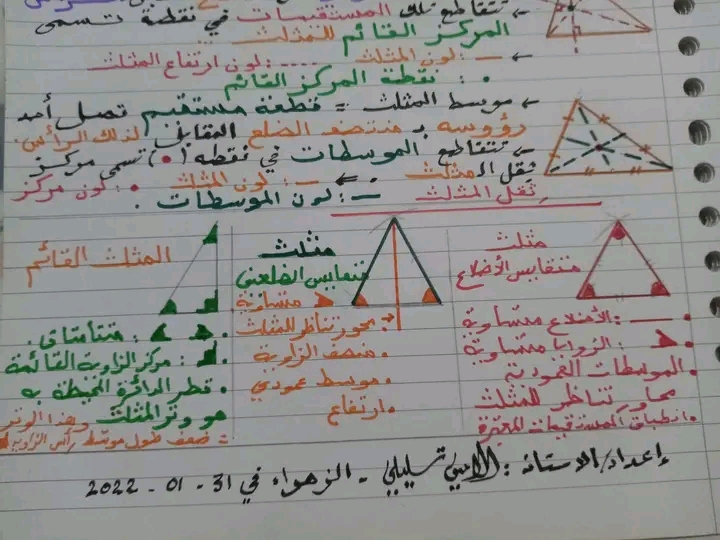 ← تتقاطع تلك المستقيمات في نقطة تسمى
المركز القائم للمثلث
← — : لون المثلث ---- : لون ارتفاع المثلث
• : نقطة المركز القائم
← موسط المثلث = قطعة مستقيم تصل أحد
رؤوسه بـ منتصف الضلع المقابل لذلك الرأس.
← تتقاطع الموسطات في نقطة (•) تسمى مركز
ثقل المثلث ⇐ — : لون المثلث • : لون مركز ثقل المثلث
— : لون الموسطات .
مثلث
متقايس الأضلاع
— : الأضلاع متساوية
: الزوايا متساوية
• الموسطات العمودية
محاور تناظر للمثلث
• انطباق المستقيمات المميزة
مثلث
متقايس الضلعين
متساوية
: محور تناظر للمثلث
• منصف الزاوية
• موسط عمودي
• ارتفاع
المثلث القائم
• : متتامتان.
• : مركز الزاوية القائمة
• قطر الدائرة المحيطة به
هو وتر المثلث وهذا الوتر
= ضعف طول موسط رأس الزاوية
إعداد/الاستاذ : تسليلي - الزهواء في 31 - 01 - 2022